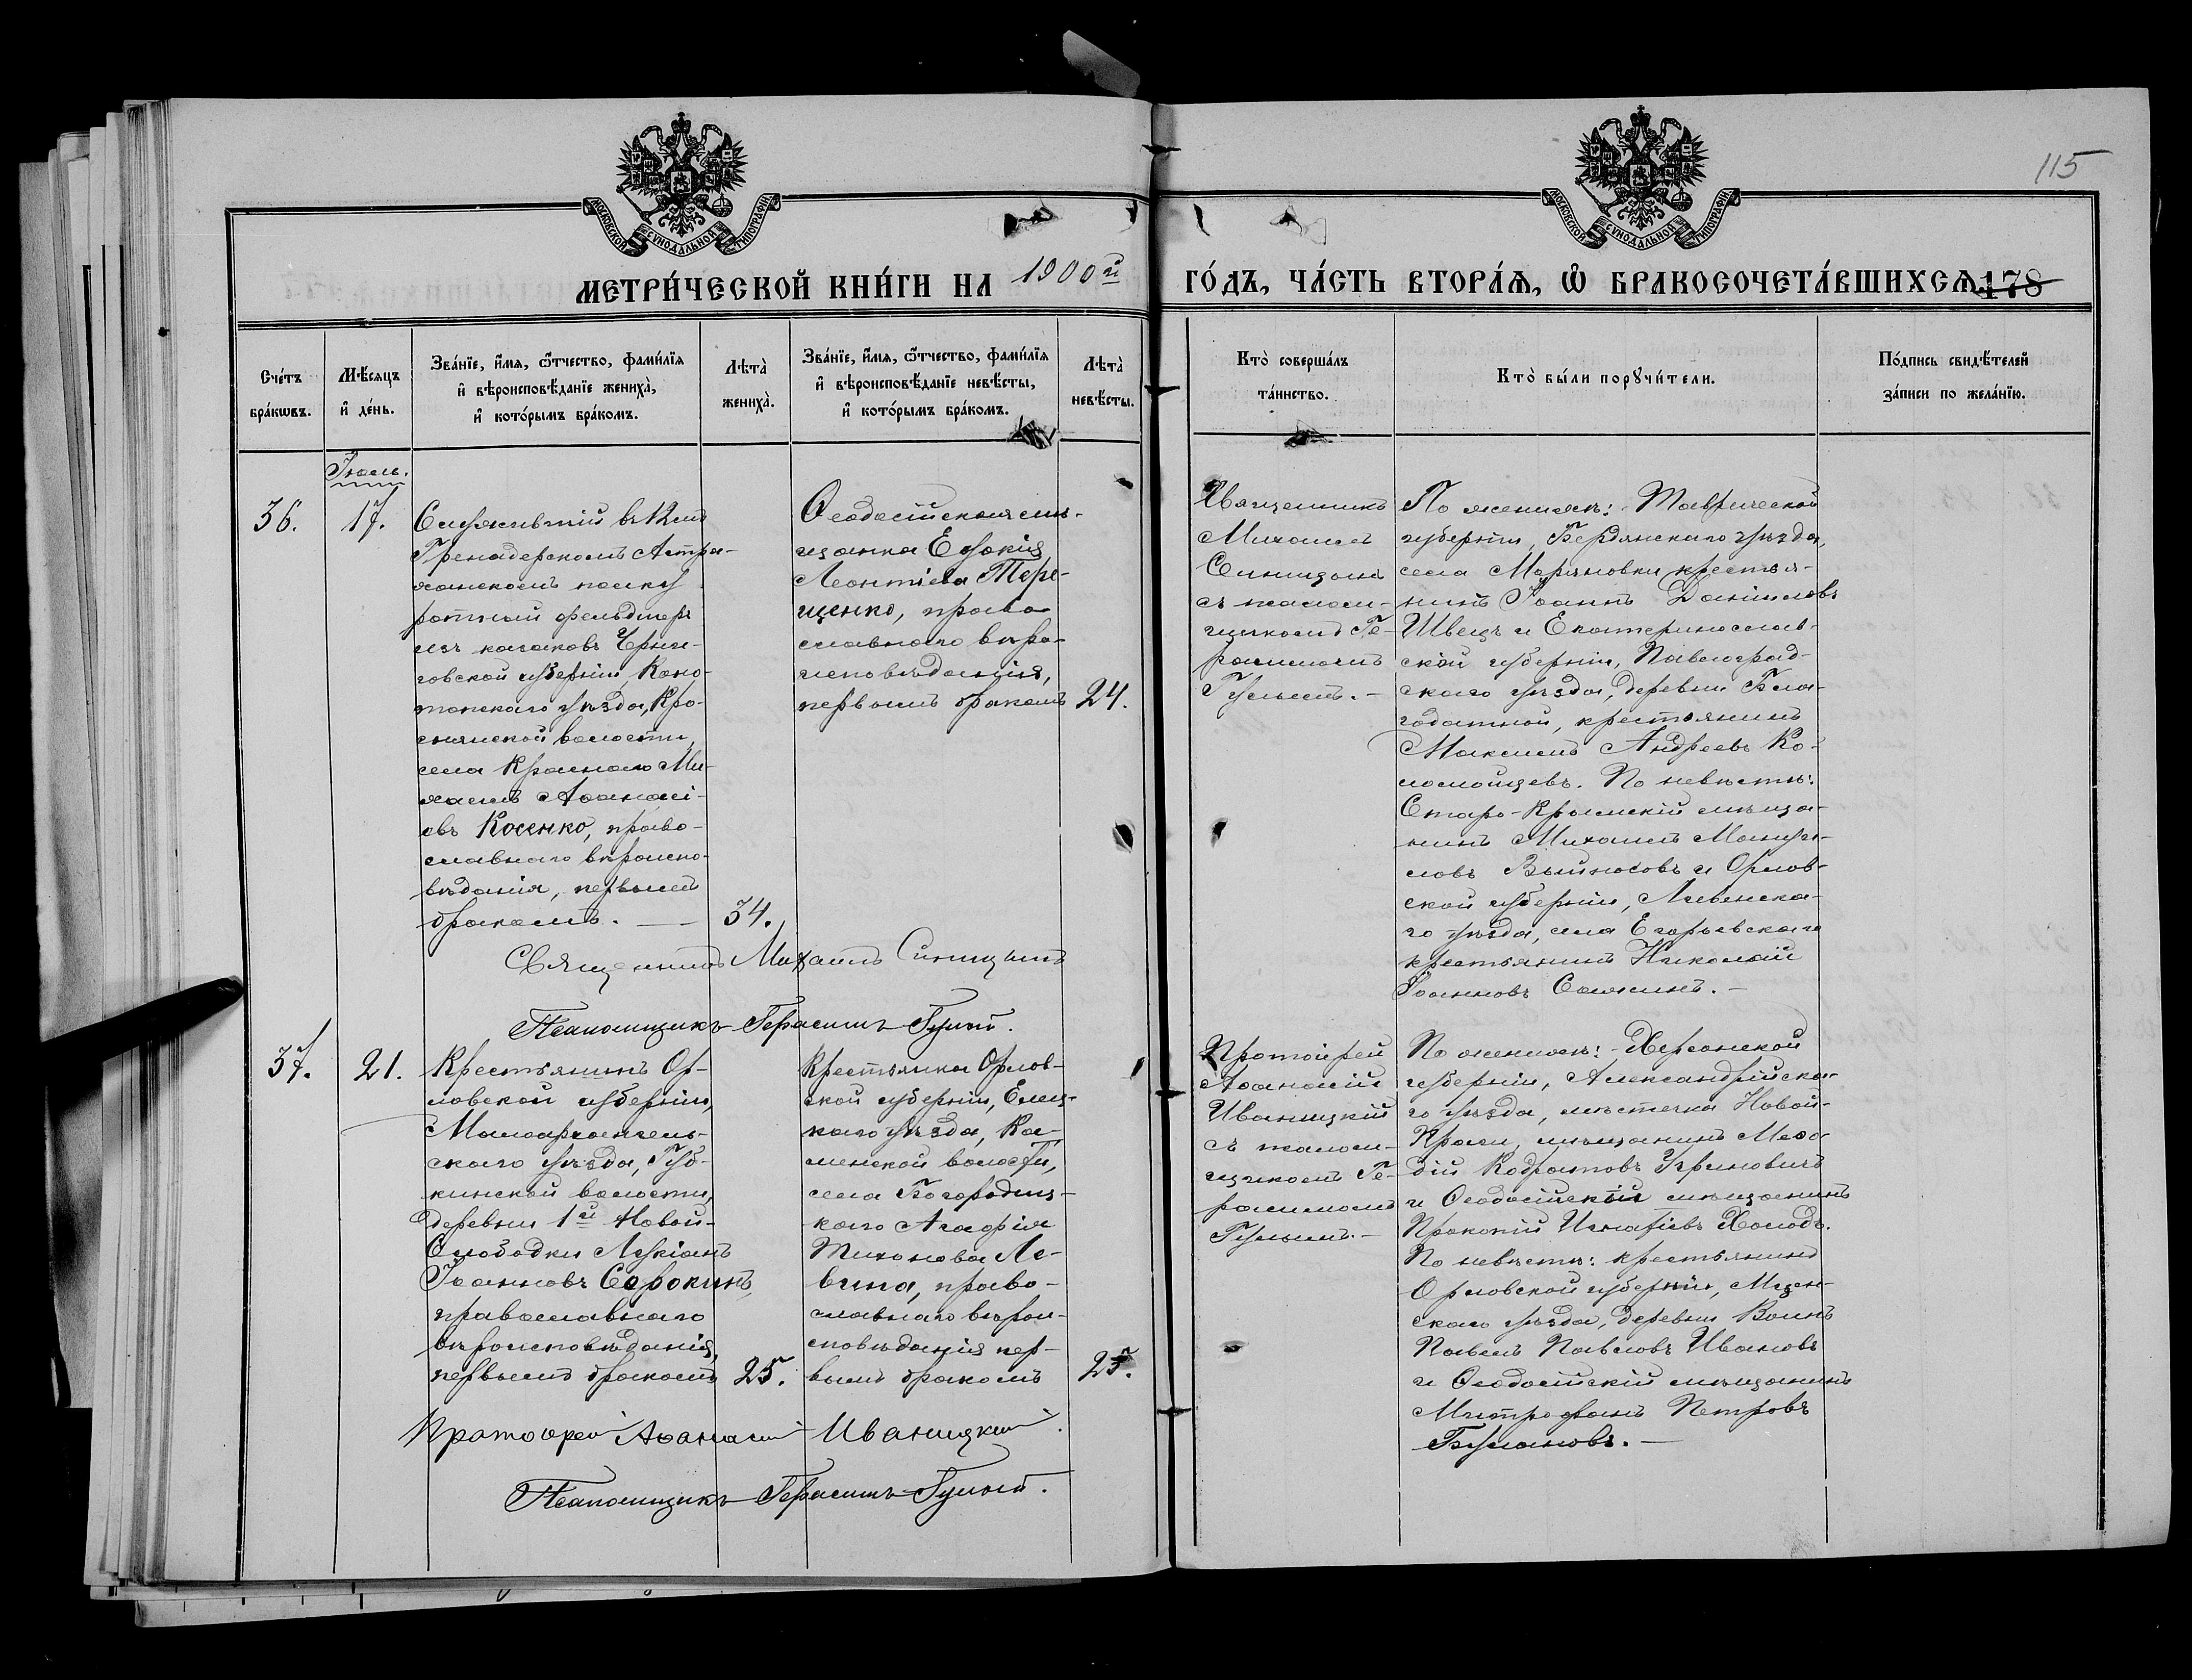 115
МОСКОВСКОЙ СѴНОДАЛЬНОЙ ТИПОГРАФІИ
МОСКОВСКОЙ СѴНОДАЛЬНОЙ ТИПОГРАФІИ
МЕТРИ́ЧЕСКОЙ КНИ́ГИ НА 1900й ГО́ДЪ, ЧА́СТЬ ВТОРА́Ѧ, Ѿ БРАКОСОЧЕТА́ВШИХСѦ. 178
Сче́тъ
бра́кѡвъ.
Мѣ́сѧцъ
и҆ де́нь.
Зва́нїе, и҆́мѧ, ѻ҆́тчество, фами́лїѧ
и҆ вѣроисповѣ́данїе жениха̀,
и҆ кото́рымъ бра́комъ.
Лѣта̀
жениха̀.
Зва́нїе, и҆́мѧ, ѻ҆́тчество, фами́лїѧ
и҆ вѣроисповѣ́данїе невѣ́сты,
и҆ кото́рымъ бра́комъ.
Лѣта̀
невѣ́сты.
Кто̀ соверша́лъ
та́инство.
Кто̀ бы́ли порꙋчи́тели.
По́дпись свидѣ́телей
за́писи по жела́нїю.
Іюль.
36.
17.
Служившій въ 12мъ
Гренадерскомъ Астра-
ханскомъ полку
ротный фельдшеръ
изъ казаковъ Черни-
говской губерніи, Коно-
топскаго уѣзда, Кра-
снянской волости,
села Краснаго Ми-
хаилъ Аѳанасі-
евъ Косенко, право-
славнаго вѣроиспо-
вѣданія, первымъ
бракомъ. —
34.
Ѳеодосійская мѣ-
щанка Евфокія
Леонтіева Тере-
щенко, право
славнаго вѣро-
исповѣданія,
первымъ бракомъ
24.
Священникъ
Михаилъ
Синицынъ
съ псалом-
щикомъ Ге-
расимомъ
Гулымъ. —
По женихѣ: Таврической
губерніи, Бердянскаго уѣзда,
села Маряновки крестья-
нинъ Іоаннъ Даніиловъ
Швецъ и Екатеринослав-
ской губерніи, Павлоград-
скаго уѣзда, деревни Бла-
годатной, крестьянинъ
Максимъ Андреевъ Ко-
ломойцевъ. По невѣстѣ:
Старо-Крымскій мѣща-
нинъ Михаилъ Мануи-
ловъ и Орлов-
ской губерніи, Ливенска-
го уѣзда, села Егорьевскаго
крестьянинъ Николай
Іоанновъ
Священникъ Михаилъ Синицынъ
Псаломщикъ Герасимъ Гулый.
37.
21.
Крестьянинъ Ор-
ловской губерніи,
Малоархангель-
скаго уѣзда, Губ-
кинской волости,
деревни 1й Новой-
Слободки Лукіанъ
Іоанновъ Сорокинъ,
православнаго
вѣроисповѣданія,
первымъ бракомъ
25.
Крестьянка Орлов-
ской губерніи, Елец-
каго уѣзда, Ка-
менской волости,
села Богородиц-
каго Агафія
Тихонова Ле-
вина, право-
славнаго вѣрои-
сповѣданія пер-
вымъ бракомъ
25.
Протоіерей
Аѳанасій
Иваницкій
съ псалом-
щикомъ Ге-
расимомъ
Гулымъ. —
По женихѣ: Херсонской
губерніи, Александрійска-
го уѣзда, мѣстечка Новой-
Праги, мѣщанинъ Меѳо
дій Кодратовъ Угриновичъ
и Ѳеодосійскій мѣщанинъ
Прокопій Игнатіевъ Холодъ.
По невѣстѣ: крестьянинъ
Орловской губерніи, Мцен-
скаго уѣзда, деревни Воинъ
Павелъ Павловъ Ивановъ
и Ѳеодосійскій мѣщанинъ
Митрофанъ Петровъ
Булановъ. —
Протоіерей Аѳанасій Иваницкій.
Псаломщикъ Герасимъ Гулый.